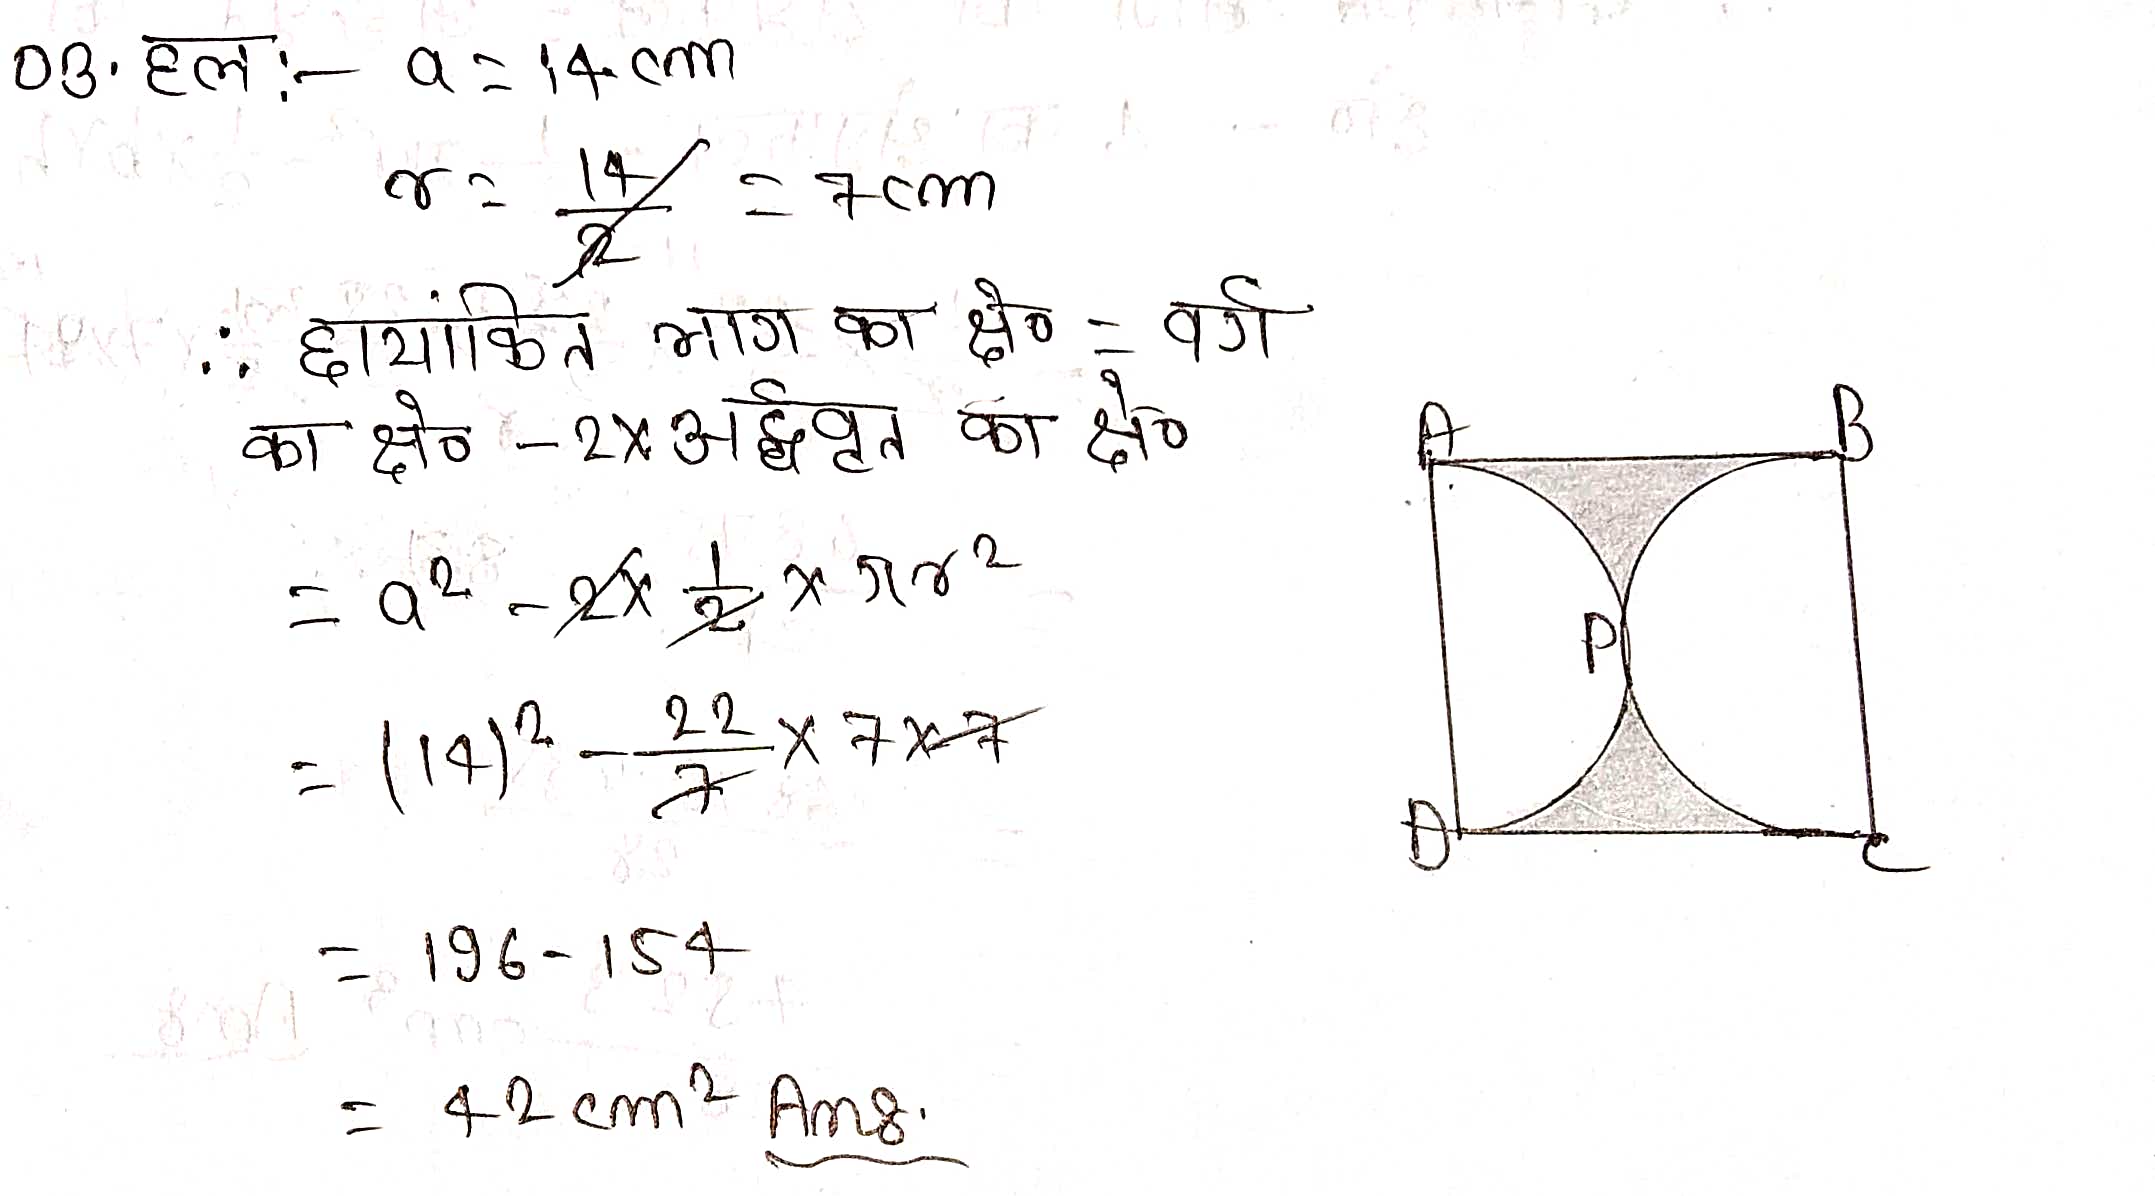 03. हल :- a = 14 cm
r = 14/2 = 7cm
∴ छायांकित भाग का क्षे० = वर्ग
का क्षे० - 2x अर्द्धवृत का क्षे०
= a² - 2x 1/2 x πr²
= (14)² - 22/7 x 7x7
= 196 - 154
= 42 cm² Ans.
A
B
P
D
C